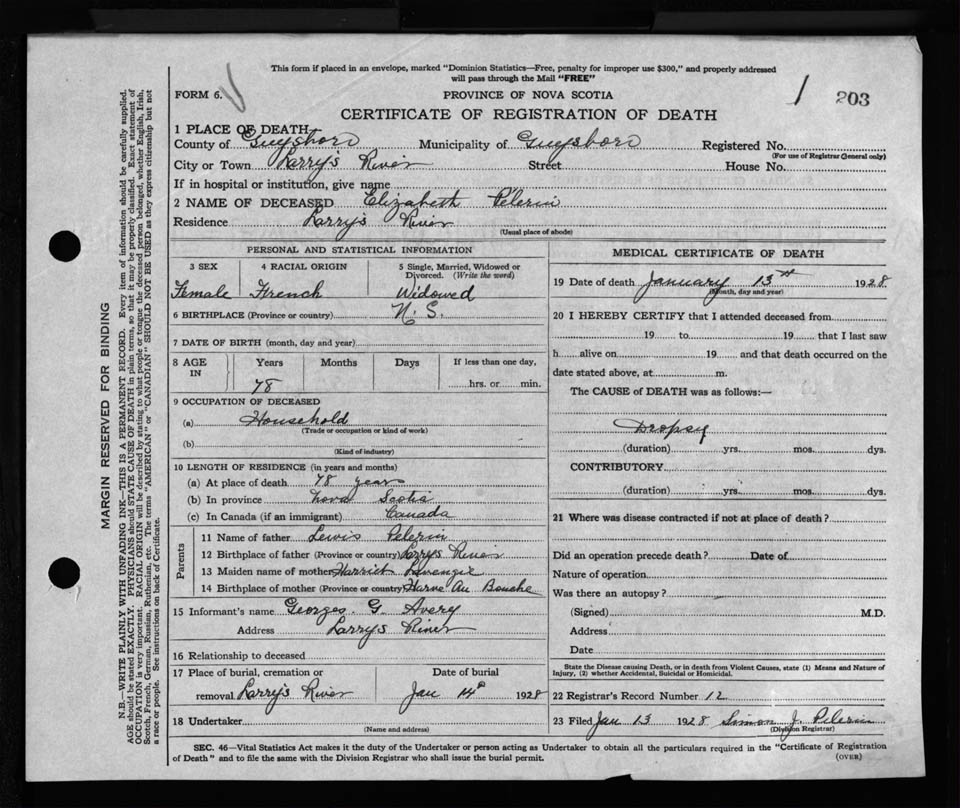 This form if placed in an envelope, marked "Dominion Statistics—Free, penalty for improper use $300," and properly addressed
will pass through the Mail "FREE"
FORM 6.
PROVINCE OF NOVA SCOTIA
1 203
CERTIFICATE OF REGISTRATION OF DEATH
1 PLACE OF DEATH
County of Guysboro Municipality of Guysboro Registered No.
(For use of Registrar General only)
City or Town Larry's River Street House No.
If in hospital or institution, give name
2 NAME OF DECEASED Elizabeth Pelerin
Residence Larry's River
(Usual place of abode)
PERSONAL AND STATISTICAL INFORMATION
3 SEX 4 RACIAL ORIGIN 5 Single, Married, Widowed or
Divorced. (Write the word)
Female French Widowed
6 BIRTHPLACE (Province or country) N. S.
7 DATE OF BIRTH (month, day and year)
8 AGE IN Years Months Days If less than one day,
78 hrs. or min.
9 OCCUPATION OF DECEASED
(a) Household
(Trade or occupation or kind of work)
(b)
(Kind of industry)
10 LENGTH OF RESIDENCE (in years and months)
(a) At place of death 78 years
(b) In province Nova Scotia
(c) In Canada (if an immigrant) Canada
Parents
11 Name of father Lewis Pelerin
12 Birthplace of father (Province or country) Larrys River
13 Maiden name of mother Harriet
14 Birthplace of mother (Province or country) Harve Au Bouche
15 Informant's name Georges G Avery
Address Larrys River
16 Relationship to deceased
17 Place of burial, cremation or Date of burial
removal Larry's River Jan 14th 1928
18 Undertaker
(Name and address)
MEDICAL CERTIFICATE OF DEATH
19 Date of death January 13th 1928
(Month, day and year)
20 I HEREBY CERTIFY that I attended deceased from
19 to 19 that I last saw
h alive on 19 and that death occurred on the
date stated above, at m.
The CAUSE of DEATH was as follows:—
Dropsy
(duration) yrs. mos. dys.
CONTRIBUTORY
(duration) yrs. mos. dys.
21 Where was disease contracted if not at place of death?
Did an operation precede death? Date of
Nature of operation
Was there an autopsy?
(Signed) M.D.
Address
Date
State the Disease causing Death, or in death from Violent Causes, state (1) Means and Nature of
Injury, (2) whether Accidental, Suicidal or Homicidal.
22 Registrar's Record Number 12
23 Filed Jan 13 1928 Simon J. Pelerin
(Division Registrar)
SEC. 46—Vital Statistics Act makes it the duty of the Undertaker or person acting as Undertaker to obtain all the particulars required in the "Certificate of Registration
of Death" and to file the same with the Division Registrar who shall issue the burial permit.
(OVER)
MARGIN RESERVED FOR BINDING
N.B.—WRITE PLAINLY WITH UNFADING INK—THIS IS A PERMANENT RECORD. Every item of information should be carefully supplied.
AGE should be stated EXACTLY. PHYSICIANS should STATE CAUSE OF DEATH in plain terms, so that it may be properly classified. Exact statement of
OCCUPATION is very important. RACIAL ORIGIN will be described by stating to what people or tongue the deceased person belonged, whether English, Irish,
Scotch, French, German, Russian, Ruthenian, etc. The terms "AMERICAN" or "CANADIAN" SHOULD NOT BE USED as they express citizenship but not
a race or people. See instructions on back of Certificate.